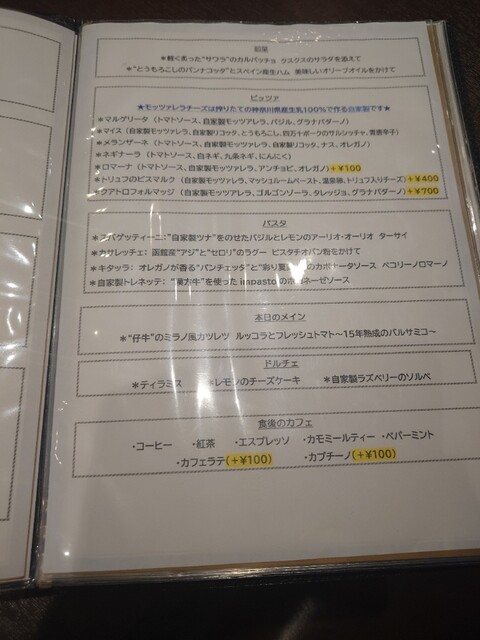 前菜
＊軽く炙った"サワラ"のカルパッチョ クスクスのサラダを添えて
＊"とうもろこしのパンナコッタ"とスペイン産生ハム 美味しいオリーブオイルをかけて
ピッツァ
★モッツァレラチーズは搾りたての神奈川県産生乳100%で作る自家製です★
＊マルゲリータ（トマトソース、自家製モッツァレラ、バジル、グラナパダーノ）
＊マイス（自家製モッツァレラ、自家製リコッタ、とうもろこし、四万十ポークのサルシッチャ、青唐辛子）
＊メランザーネ（トマトソース、自家製モッツァレラ、自家製リコッタ、ナス、オレガノ）
＊ネギナーラ（トマトソース、白ネギ、九条ネギ、にんにく）
＊ロマーナ（トマトソース、自家製モッツァレラ、アンチョビ、オレガノ）＋¥100
＊トリュフのビスマルク（自家製モッツァレラ、マッシュルームペースト、温泉卵、トリュフ入りチーズ）＋¥400
＊クアトロフォルマッジ（自家製モッツァレラ、ゴルゴンゾーラ、タレッジョ、グラナパダーノ）＋¥700
パスタ
＊スパゲッティーニ："自家製ツナ"をのせたバジルとレモンのアーリオ・オーリオ ターサイ
＊カサレッチェ：函館産"アジ"と"セロリ"のラグー ピスタチオパン粉をかけて
＊キタッラ：オレガノが香る"パンチェッタ"と"彩り夏の"カポナータソース ペコリーノロマーノ
＊自家製トレネッテ："漢方牛"を使ったimpastoのボロネーゼソース
本日のメイン
＊"仔牛"のミラノ風カツレツ ルッコラとフレッシュトマト～15年熟成のバルサミコ～
ドルチェ
＊ティラミス ＊レモンのチーズケーキ ＊自家製ラズベリーのソルベ
食後のカフェ
・コーヒー ・紅茶 ・エスプレッソ ・カモミールティー ・ペパーミント
・カフェラテ（＋¥100） ・カプチーノ（＋¥100）